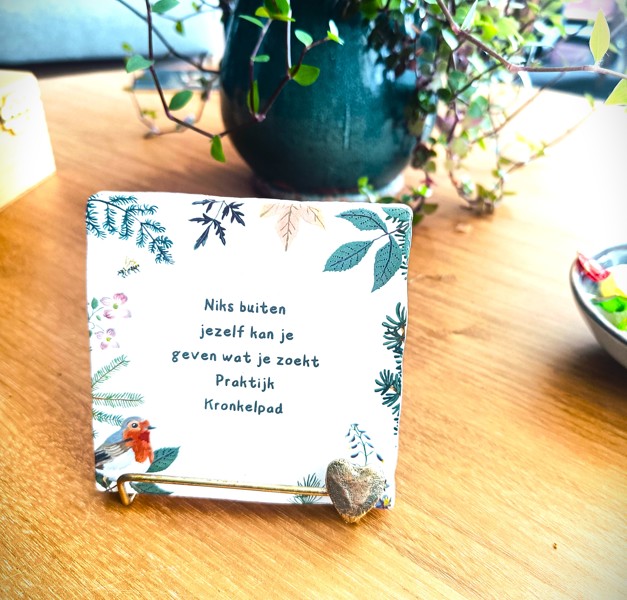 Niks buiten
jezelf kan je
geven wat je zoekt
Praktijk
Kronkelpad